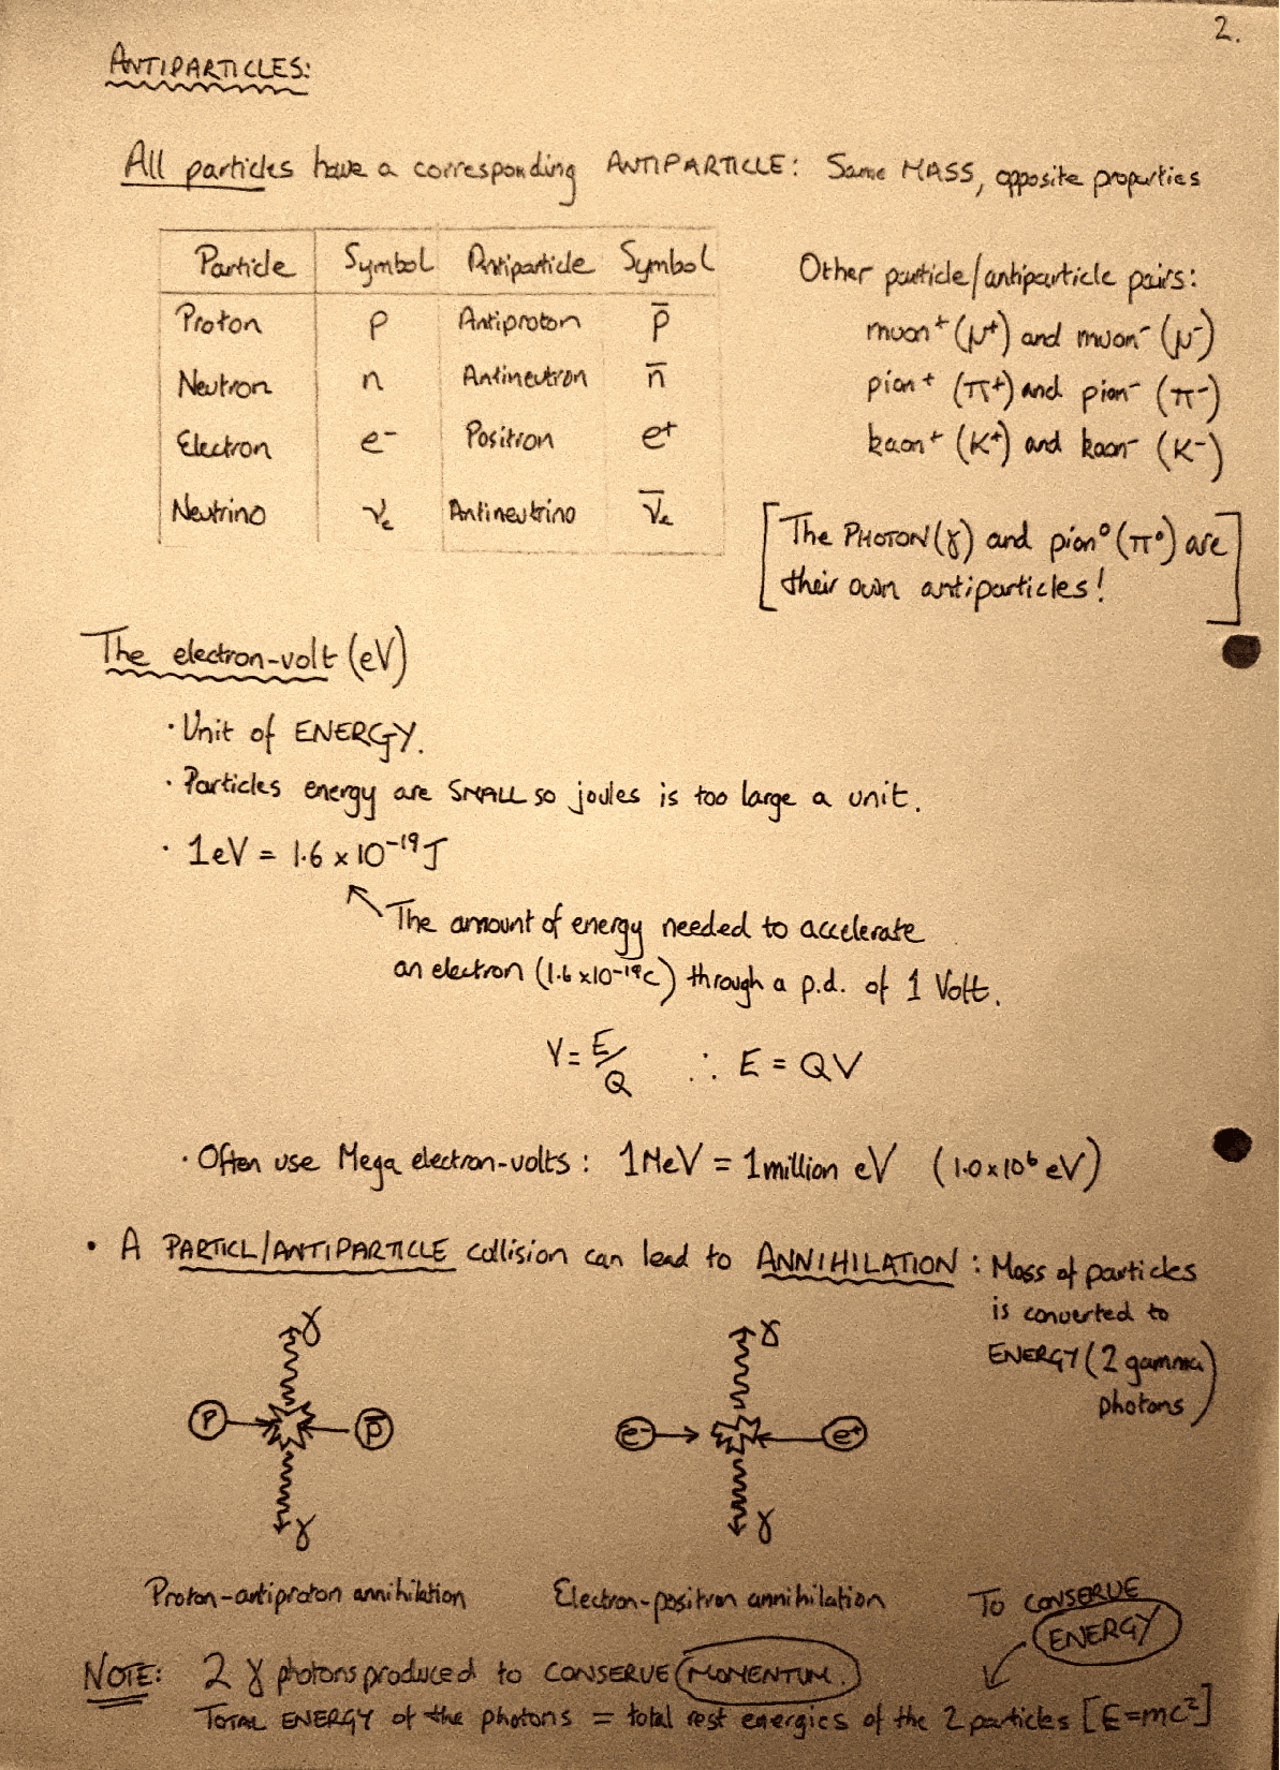 2.
ANTIPARTICLES:
All particles have a corresponding ANTIPARTICLE: Same MASS, opposite properties
Particle Symbol Antiparticle Symbol
Proton p Antiproton p̅
Neutron n Antineutron n̅
Electron e⁻ Positron e⁺
Neutrino νₑ Antineutrino ν̅ₑ
Other particle/antiparticle pairs:
muon⁺ (μ⁺) and muon⁻ (μ⁻)
pion⁺ (π⁺) and pion⁻ (π⁻)
kaon⁺ (K⁺) and kaon⁻ (K⁻)
[The PHOTON (γ) and pion⁰ (π⁰) are
their own antiparticles!]
The electron-volt (eV)
· Unit of ENERGY.
· Particles energy are SMALL so joules is too large a unit.
· 1eV = 1.6 × 10⁻¹⁹ J
The amount of energy needed to accelerate
an electron (1.6 × 10⁻¹⁹C) through a p.d. of 1 Volt.
V = E/Q ∴ E = QV
· Often use Mega electron-volts: 1MeV = 1 million eV (1.0 × 10⁶ eV)
• A PARTICL/ANTIPARTICLE collision can lead to ANNIHILATION: Mass of particles
is converted to
ENERGY (2 gamma
photons)
γ γ
p p̅ e⁻ e⁺
γ γ
Proton-antiproton annihilation Electron-positron annihilation
To CONSERVE
ENERGY
NOTE: 2 γ photons produced to CONSERVE MOMENTUM.
TOTAL ENERGY of the photons = total rest energies of the 2 particles [E=mc²]